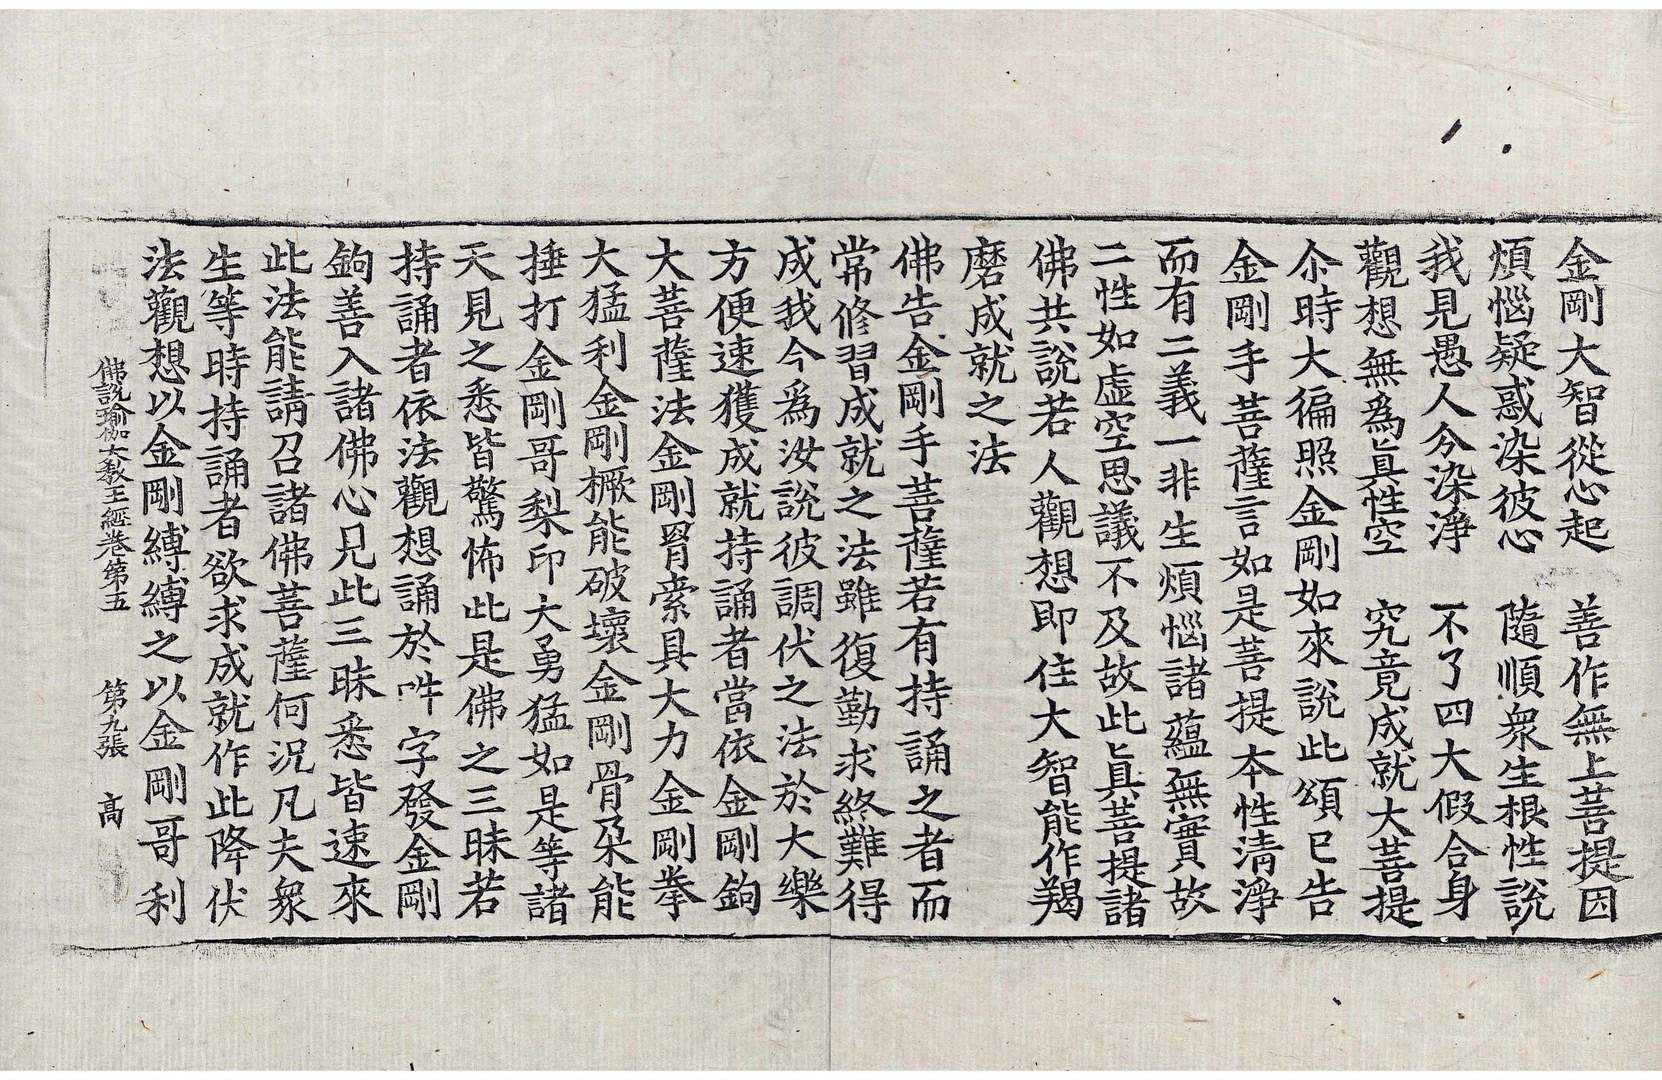 金剛大智從心起　善作無上菩提因
煩惱疑惑染彼心　隨順衆生根性說
我見愚人分染淨　不了四大假合身
觀想無爲眞性空　究竟成就大菩提
尒時大徧照金剛如來說此頌已告
金剛手菩薩言如是菩提本性清淨
而有二義一非生煩惱諸蘊無實故
二性如虛空思議不及故此眞菩提諸
佛共說若人觀想即住大智能作羯
磨成就之法
佛告金剛手菩薩若有持誦之者而
常修習成就之法雖復勤求終難得
成我今爲汝說彼調伏之法於大樂
方便速獲成就持誦者當依金剛鉤
大菩薩法金剛罥索具大力金剛拳
大猛利金剛橛能破壞金剛骨朶能
捶打金剛哥梨印大勇猛如是等諸
天見之悉皆驚怖此是佛之三昧若
持誦者依法觀想誦於吽字發金剛
鉤善入諸佛心見此三昧悉皆速來
此法能請召諸佛菩薩何況凡夫衆
生等時持誦者欲求成就作此降伏
法觀想以金剛縛縛之以金剛哥利
佛說瑜伽大教王經卷第五　第九張　高